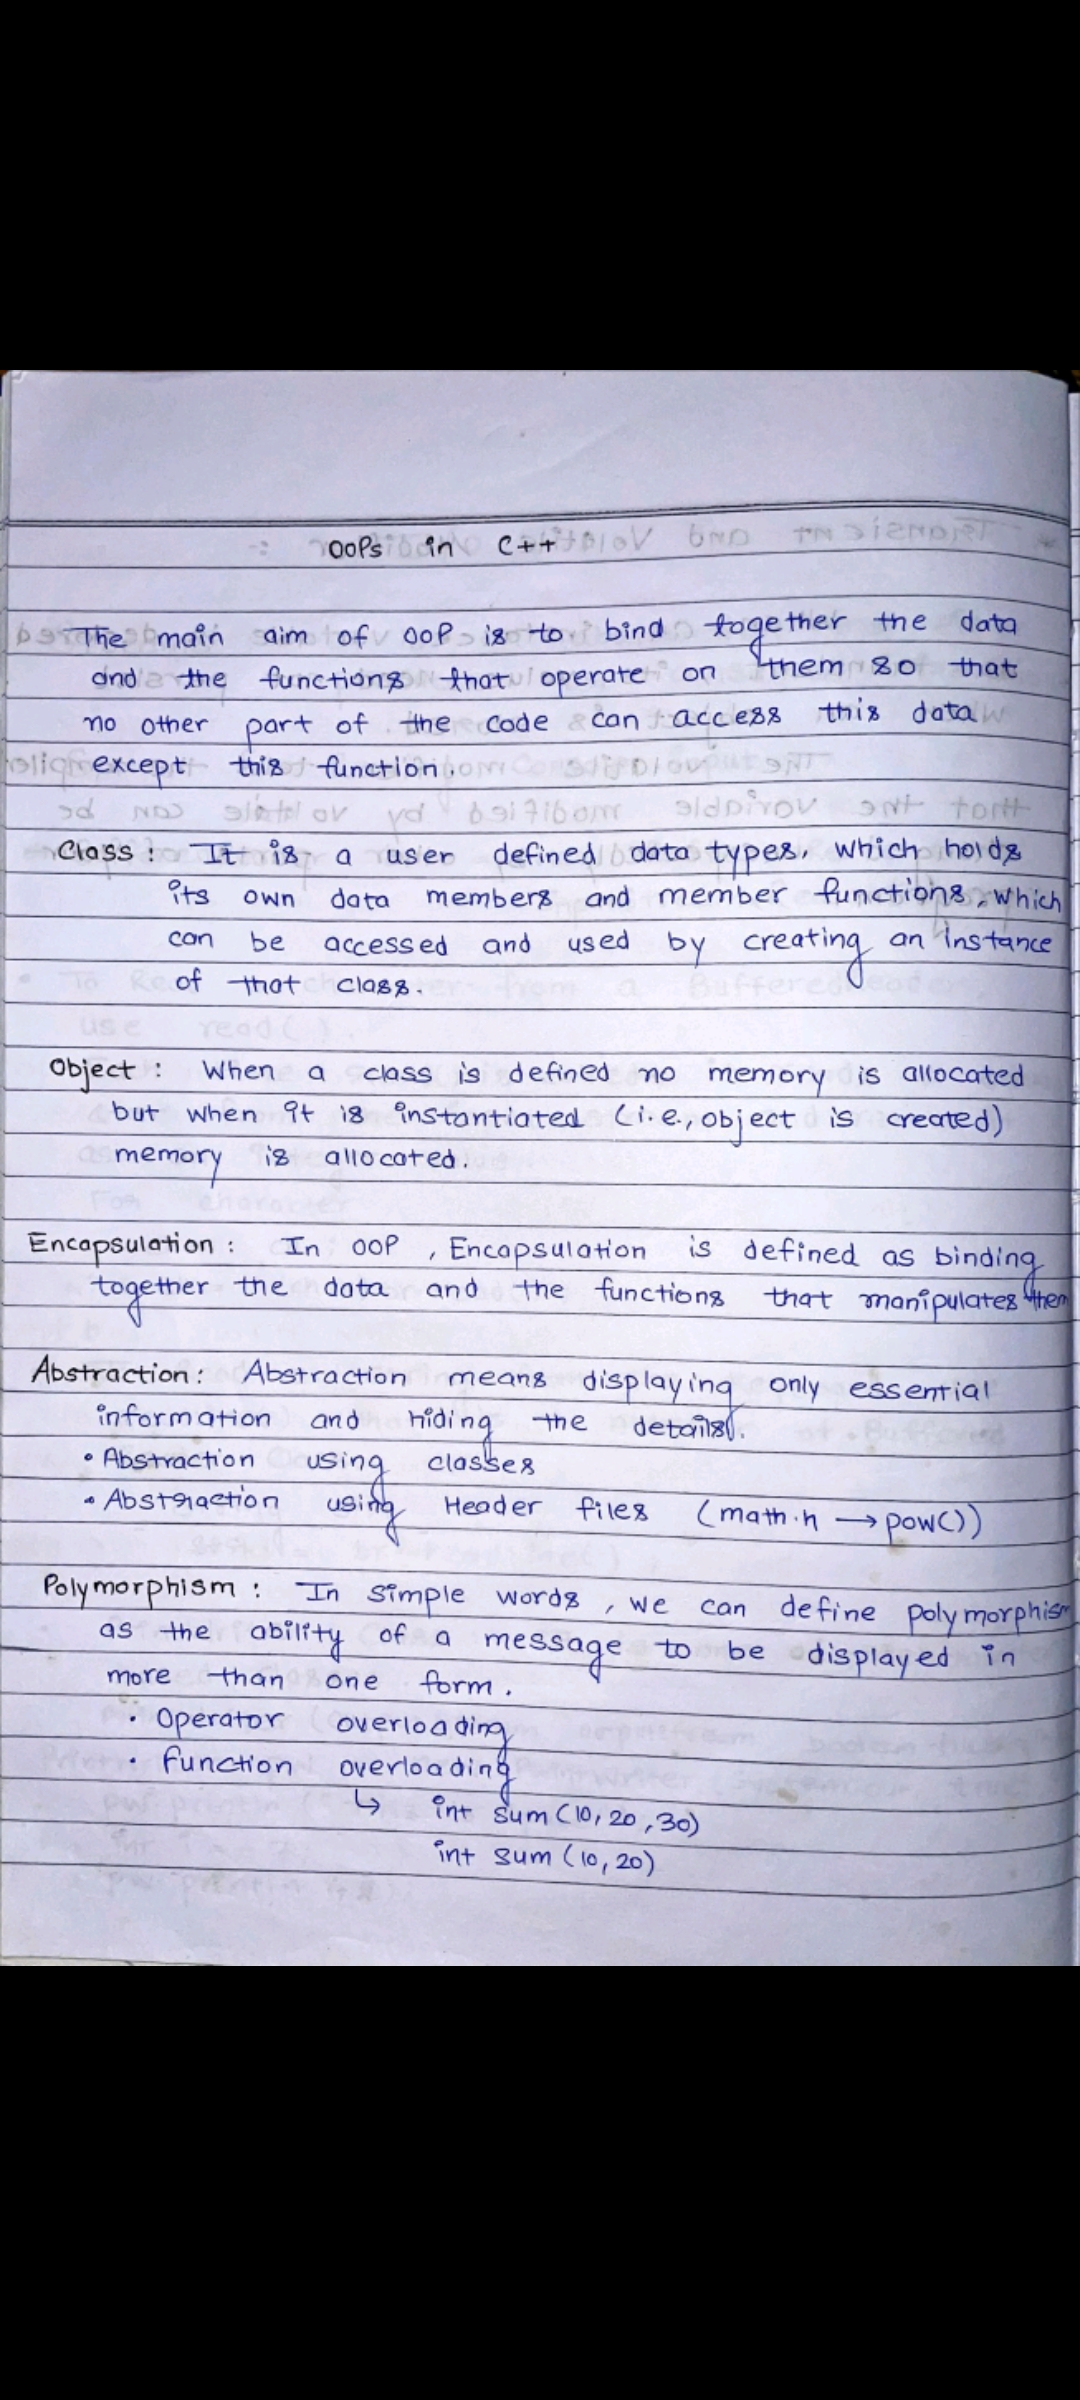 OOPs in C++
The main aim of OOP is to bind together the data
and the functions that operate on them so that
no other part of the code can access this data
except this function.
Class : It is a user defined data types, which holds
its own data members and member functions, which
can be accessed and used by creating an instance
of that class.
Object : When a class is defined no memory is allocated
but when it is instantiated (i.e., object is created)
memory is allocated.
Encapsulation : In OOP , Encapsulation is defined as binding
together the data and the functions that manipulates them
Abstraction : Abstraction means displaying only essential
information and hiding the details.
• Abstraction using classes
• Abstraction using Header files (math.h → pow())
Polymorphism : In simple words , we can define polymorphism
as the ability of a message to be displayed in
more than one form.
• Operator overloading
• function overloading
↳ int sum (10, 20, 30)
int sum (10, 20)